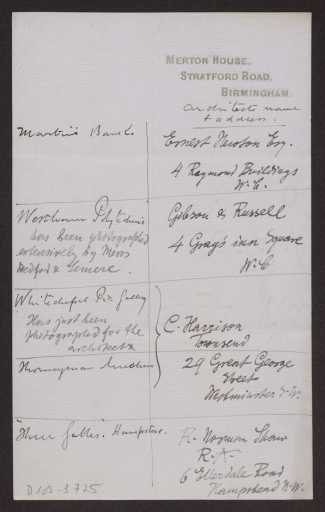 MERTON HOUSE,
STRATFORD ROAD,
BIRMINGHAM.
Architects name
& address.
Martin's Bank
Ernest Newton Esq.
4 Raymond Buildings
W.C.
Polytechnic
has been photographed
extensively by Messrs
Bedford & Lemere.
Gibson & Russell
4 Gray's inn Square
W.C
Whitechapel Pic Gallery
Has just been
photographed for the
architects
Horniman Museum
C. Harrison
Townsend
29 Great George
Street
Westminster S.W.
"Three Gables". Hampstead.
R. Norman Shaw
R.A.
6 Ellerdale Road
Hampstead N.W.